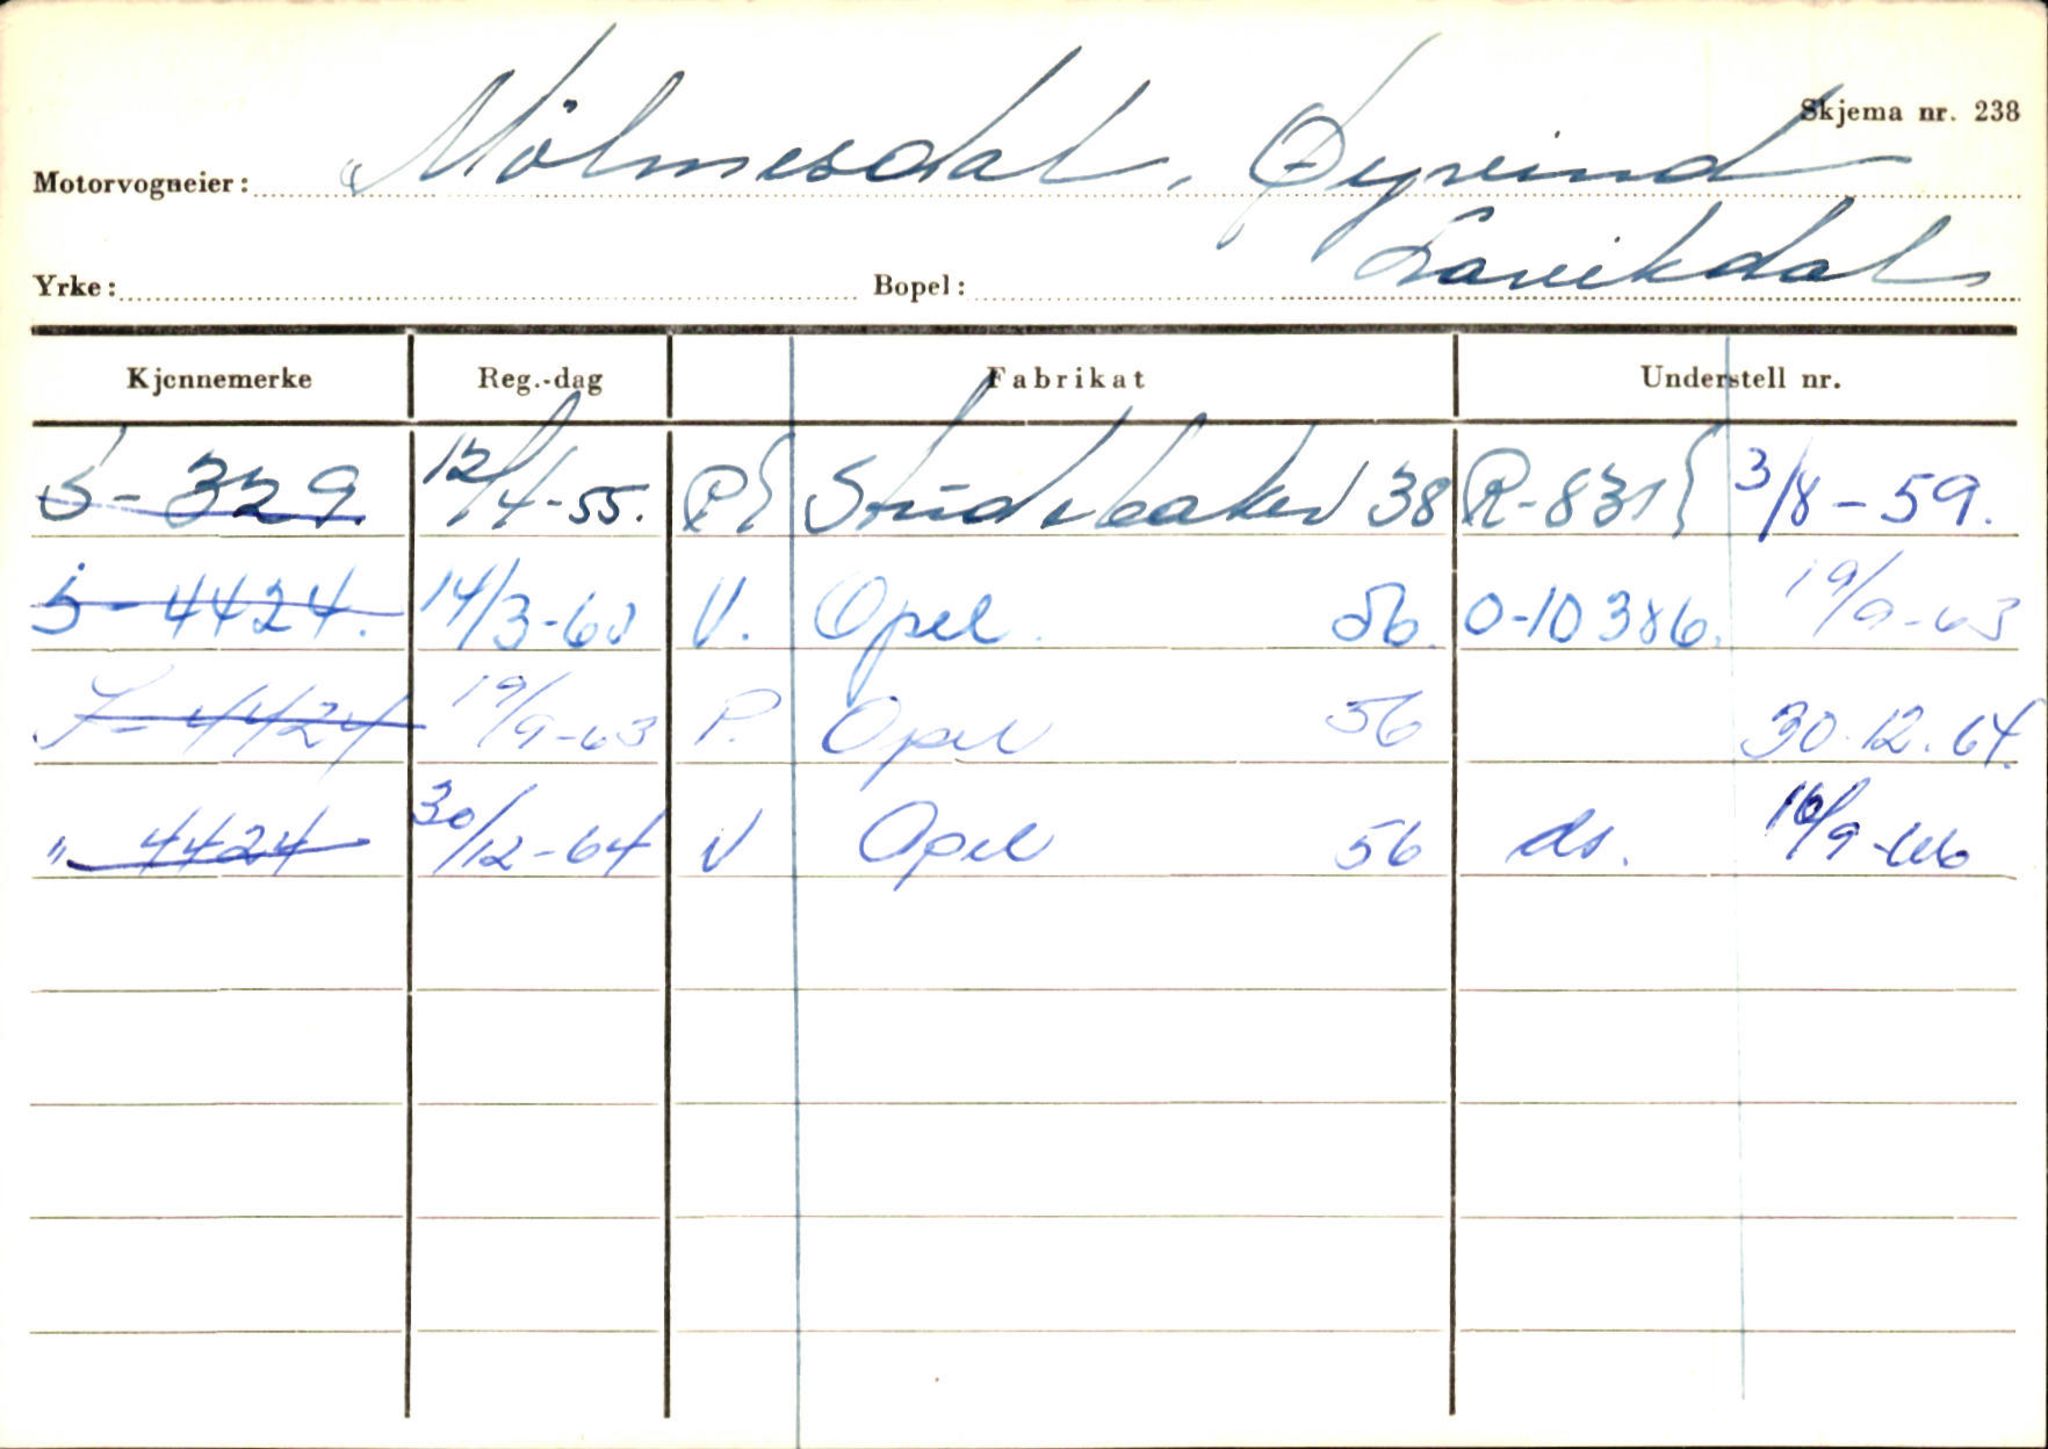 Skjema nr. 238
Motorvogneier: Mölmesdal, Øyvind
Yrke: Bopel: Lavikdal
Kjennemerke Reg.-dag Fabrikat Understell nr.
S-329 12/4-55. P Studebaker 38 R-831 3/8-59.
S-4424. 14/3-60 V. Opel. 56. 0-10386. 19/9-63
S-4424 19/9-63 P. Opel 56 30.12.64.
" 4424 30/12-64 V Opel 56 ds. 16/9-66